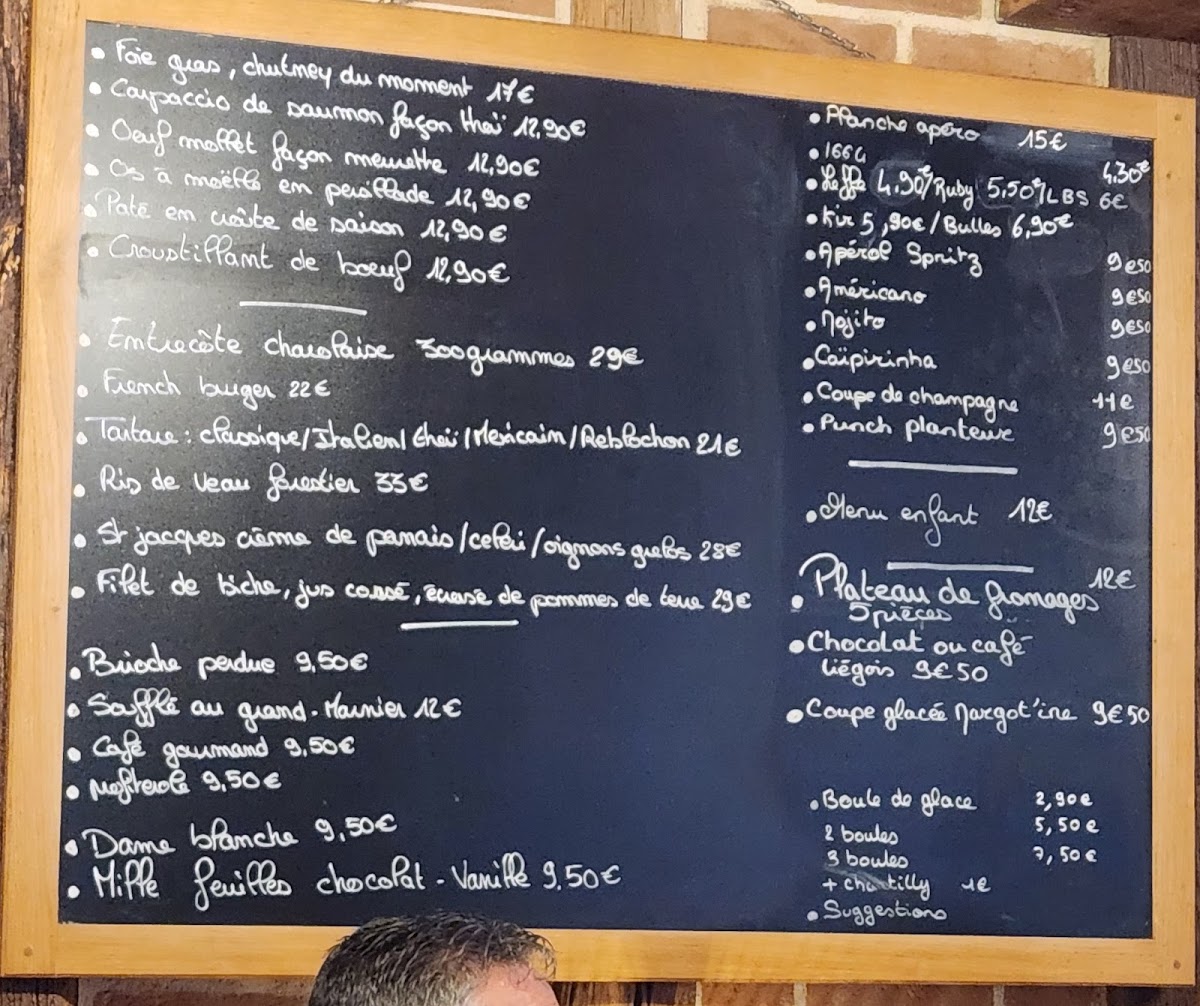 • Foie gras, chutney du moment 17€
• Carpaccio de saumon façon thaï 12,90€
• Oeuf mollet façon meurette 12,90€
• Os à moëlle en persillade 12,90€
• Paté en croûte de saison 12,90€
• Croustillant de boeuf 12,90€
• Entrecôte charolaise 300grammes 29€
• French burger 22€
• Tartare : classique/Italien/thaï/Mexicain/Reblochon 21€
• Ris de veau forestier 33€
• St jacques crème de panais/celeri/oignons grelos 28€
• Filet de biche, jus corsé, écrasé de pommes de terre 29€
• Brioche perdue 9,50€
• Soufflé au grand-Marnier 12€
• Café gourmand 9,50€
• 9,50€
• Dame blanche 9,50€
• Mille feuilles chocolat - Vanille 9,50€
• Planche apéro 15€
• 1664 4,30€
• Leffe 4,90€/Ruby 5,50€/LBS 6€
• Kir 5,90€/Bulles 6,90€
• Apérol Spritz 9€50
• Américano 9€50
• Mojito 9€50
• Caïpirinha 9€50
• Coupe de champagne 11€
• Punch planteur 9€50
• Menu enfant 12€
• Plateau de fromages 12€
5 pièces
• Chocolat ou café
liégois 9€50
• Coupe glacée Margot'ine 9€50
• Boule de glace 2,90€
2 boules 5,50€
3 boules 7,50€
+ chantilly 1€
• Suggestions